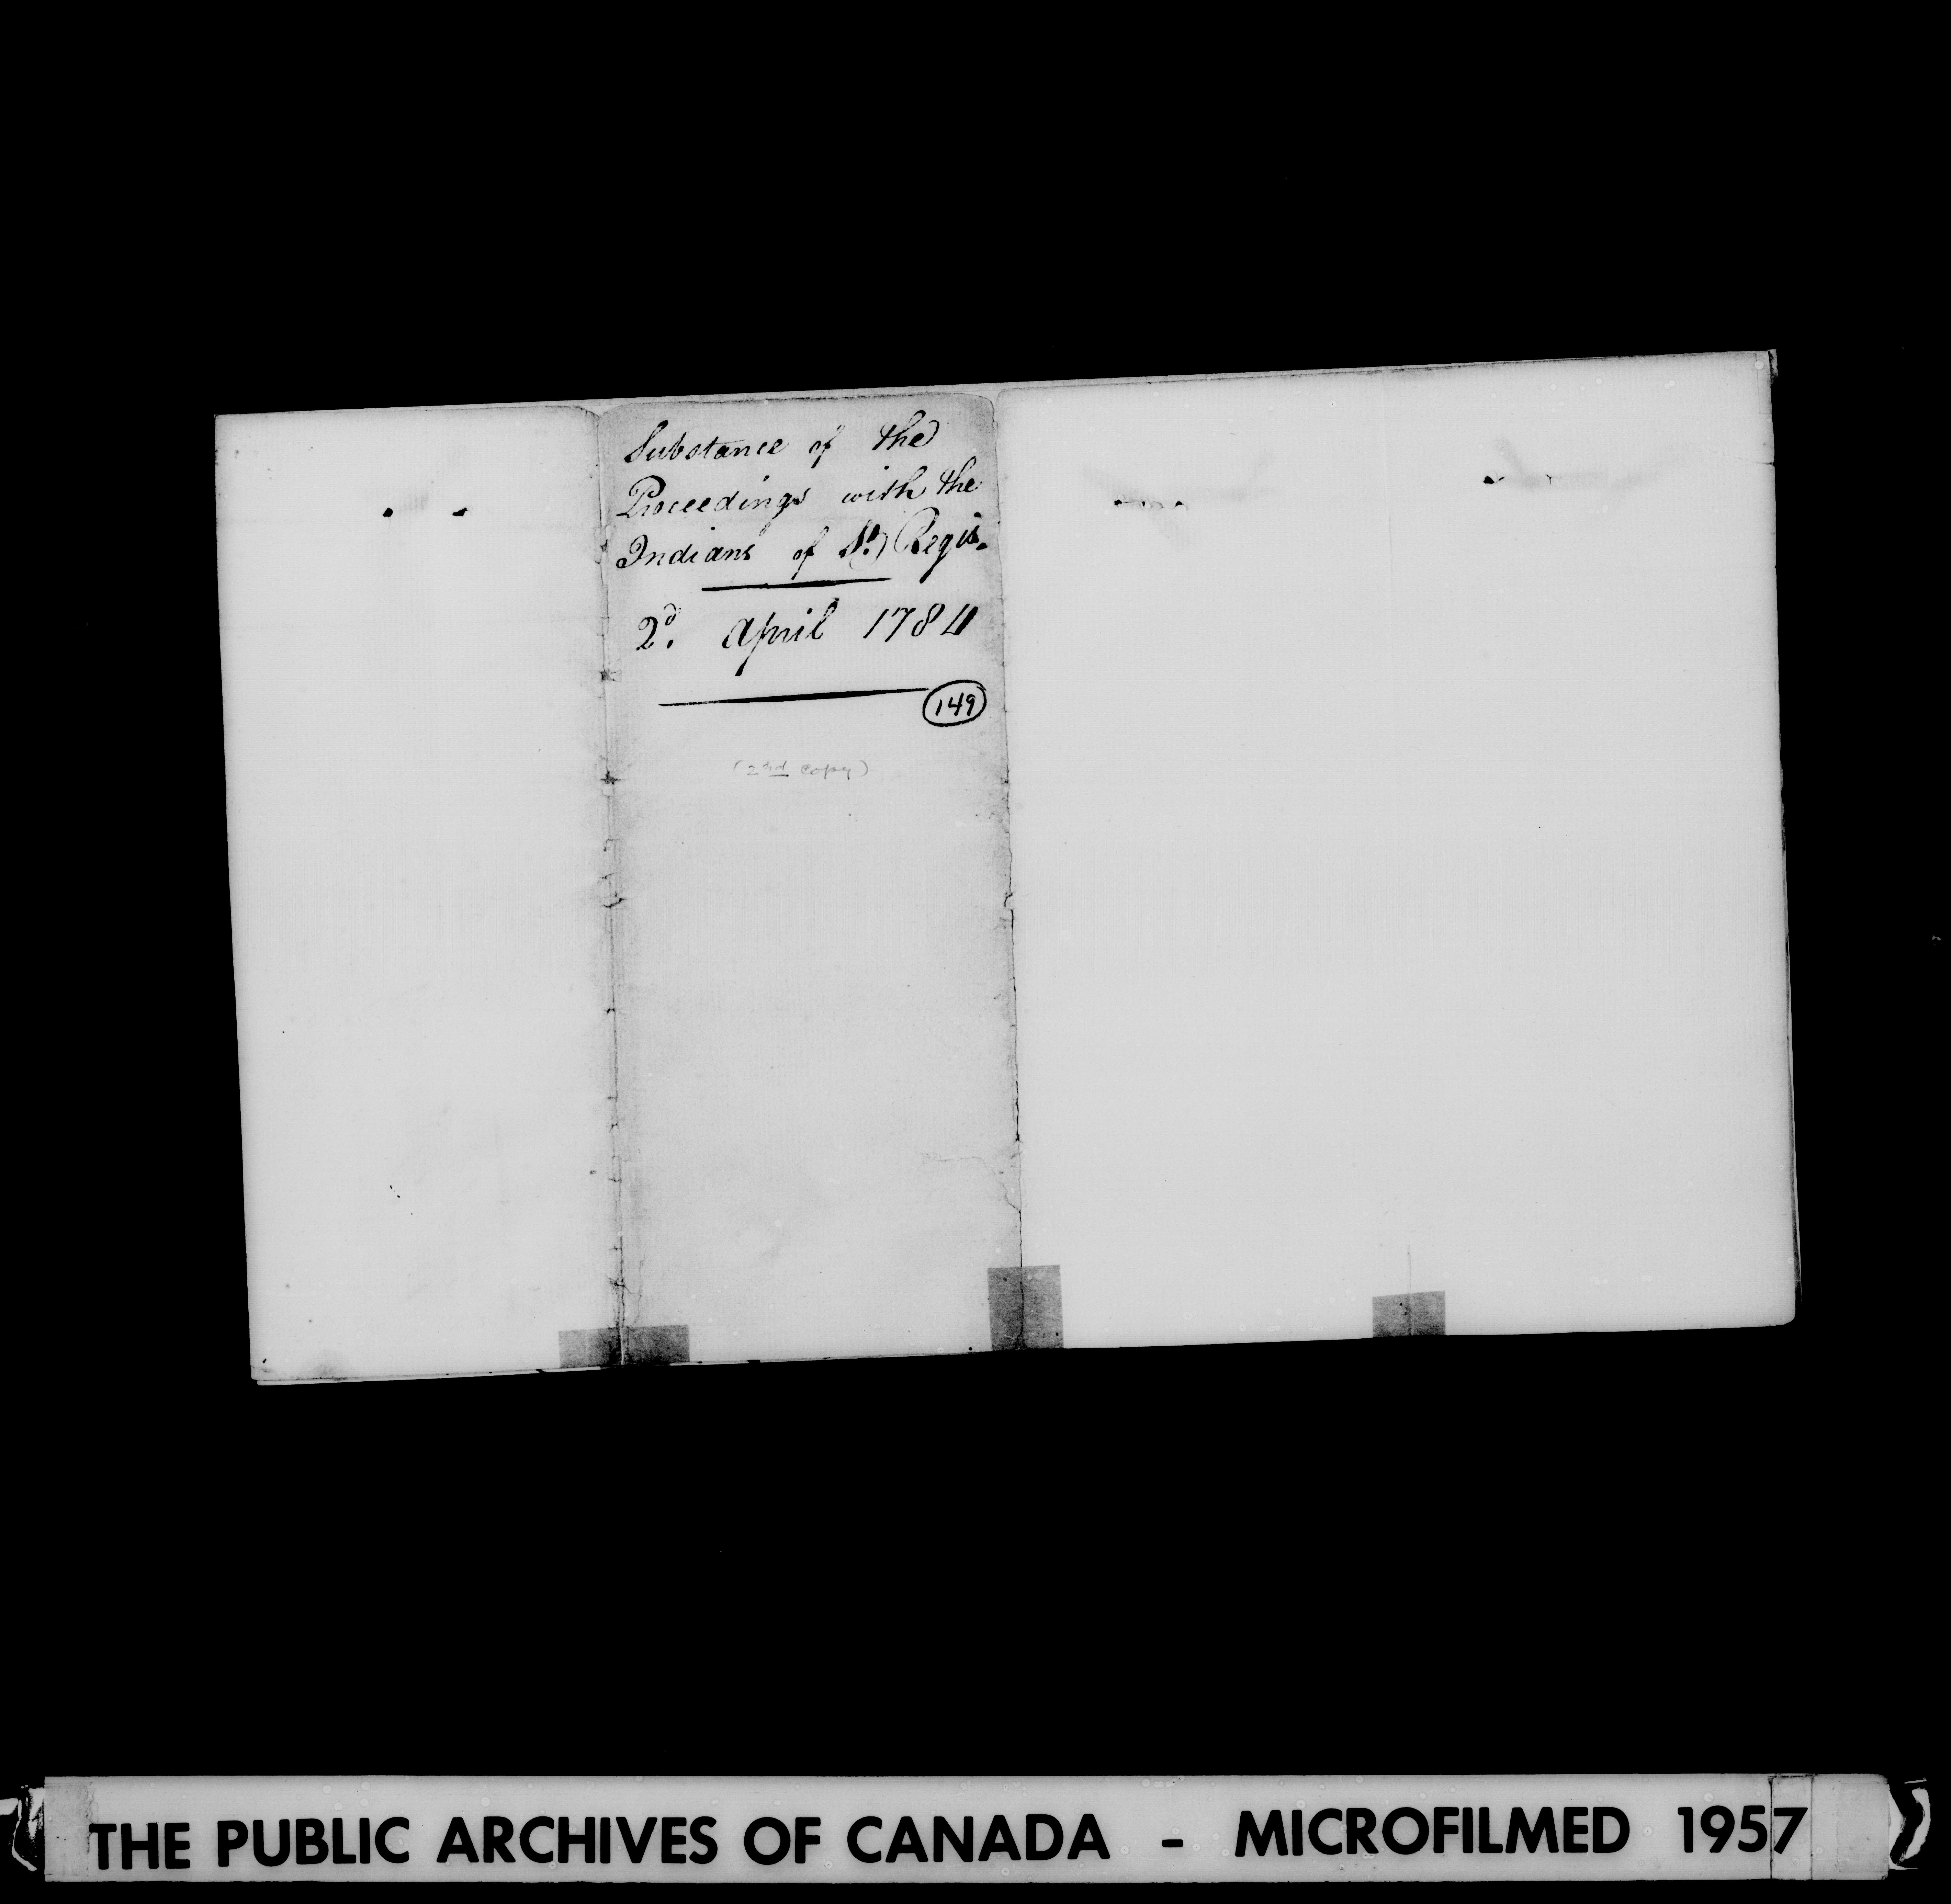 Substance of the
Proceedings with the
Indians of St. Regis.
2d. April 1784
149
(2nd copy)
THE PUBLIC ARCHIVES OF CANADA - MICROFILMED 1957